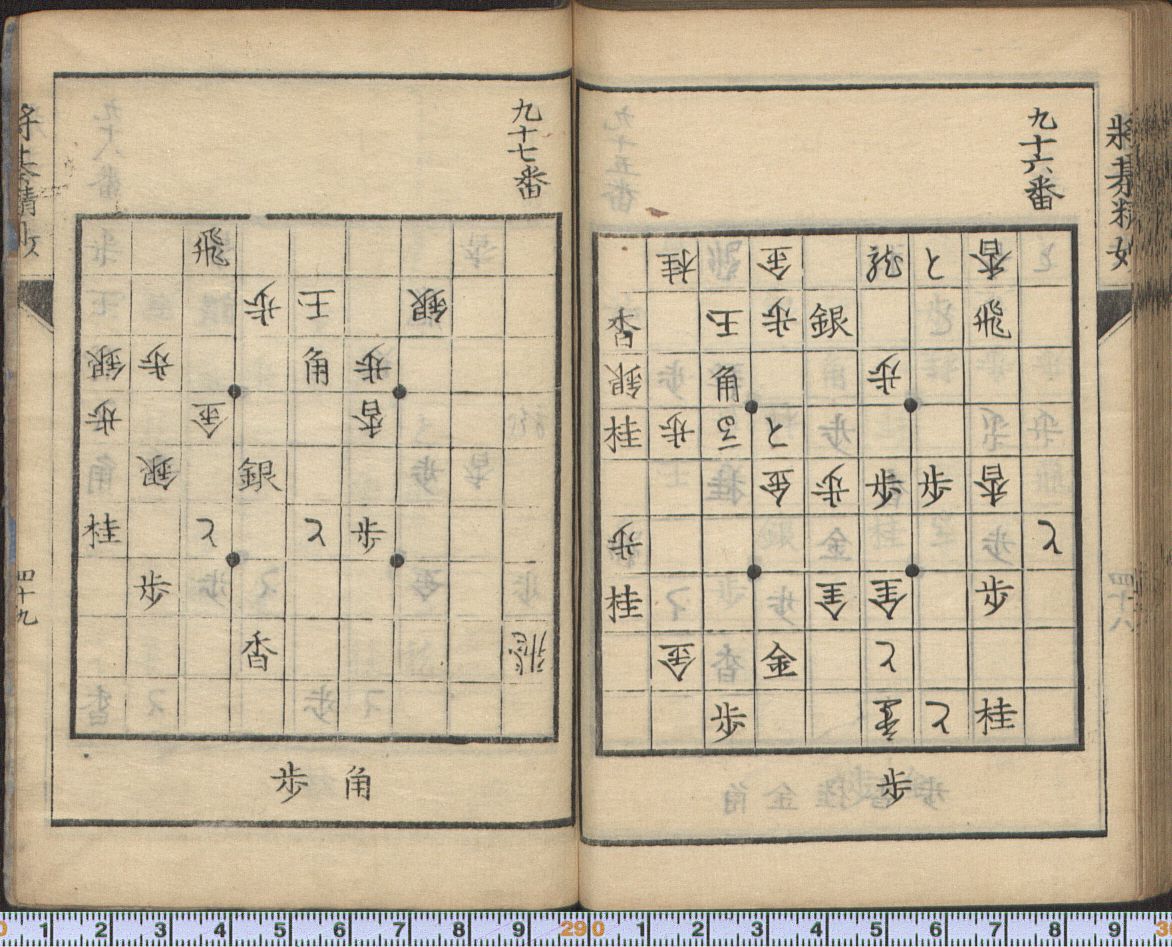 将棊精妙
九十六番
桂 金 龍 と 香
香 王 歩 銀 飛
銀 角 歩
桂 歩 と
金 歩 歩 歩 香
歩 と
桂 金 金 歩
金 金 と
歩 と 桂
歩
九十七番
飛
歩 王 銀
銀 歩 角 歩
歩 金 香
銀 銀
桂 と と 歩
歩
香 飛
角 歩
将棊精妙
四十九
0 1 2 3 4 5 6 7 8 9 29 0 1 2 3 4 5 6 7 8 9 3